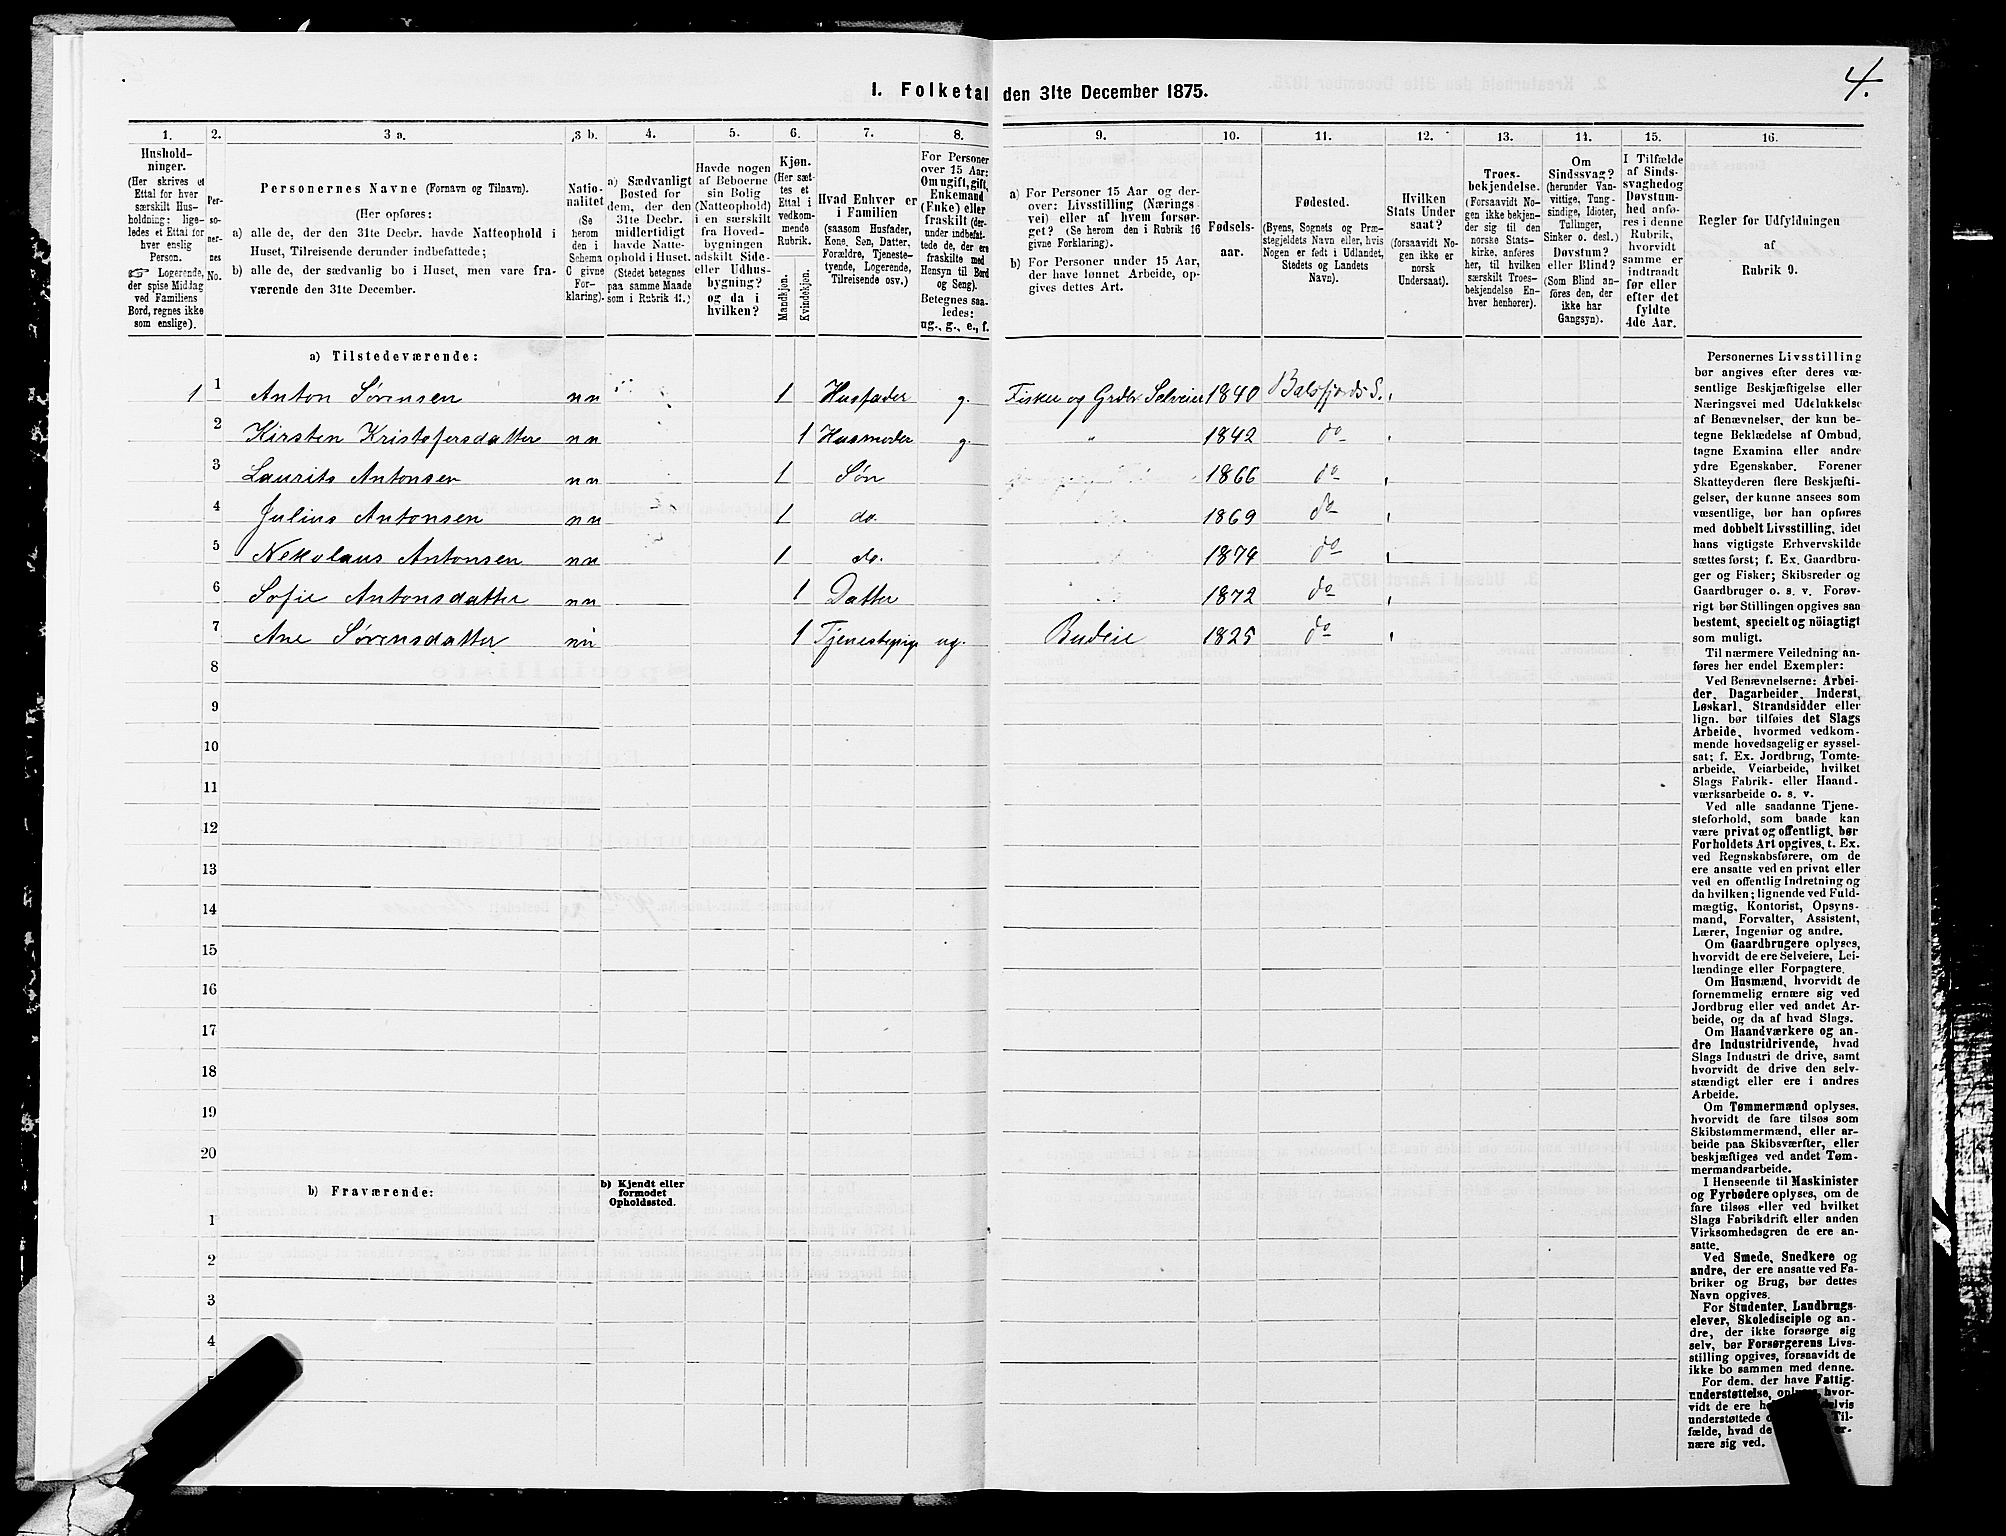 4.
I. Folketal den 31te December 1875.
1. 2. 3 a. 3 b. 4. 5. 6. 7. 8. 9. 10. 11. 12. 13. 14. 15. 16.
Hushold-
ninger.
(Her skrives et
Ettal for hver
særskilt Hus-
holdning; lige-
ledes et Ettal for
hver enslig
Person.
☞ Logerende,
der spise Middag
ved Familiens
Bord, regnes ikke
som enslige).
Per-
so-
ner-
nes
No.
Personernes Navne (Fornavn og Tilnavn).
(Her opføres:
a) alle de, der den 31te Decbr. havde Natteophold i
Huset, Tilreisende derunder indbefattede;
b) alle de, der sædvanlig bo i Huset, men vare fra-
værende den 31te December.
Natio-
nalitet
(Se
herom
den i
Schema
C givne
For-
klaring).
a) Sædvanligt
Bosted for
dem, der den
31te Decbr.
midlertidigt
havde Natte-
ophold i Huset.
(Stedet betegnes
paa samme Maade
som i Rubrik 11.)
Havde nogen
af Beboerne
sin Bolig
(Natteophold)
i en særskilt
fra Hoved-
bygningen
adskilt Side-
eller Udhus-
bygning?
og da i
hvilken?
Kjøn.
(Her sæt-
tes et
Ettal i
vedkom-
mende
Rubrik.
Mandkjøn.
Kvindekjøn.
Hvad Enhver er
i Familien
(saasom Husfader,
Kone, Søn, Datter,
Forældre, Tjeneste-
tyende, Logerende,
Tilreisende osv.)
For Personer
over 15 Aar:
Om ugift, gift,
Enkemand
(Enke) eller
fraskilt (der-
under indbefat-
tede de, der ere
fraskilte med
Hensyn til Bord
og Seng).
Betegnes saa-
ledes:
ug., g., e., f.
a) For Personer 15 Aar og der-
over: Livsstilling (Nærings
vei) eller af hvem forsør-
get? (Se herom den i Rubrik 16
givne Forklaring).
b) For Personer under 15 Aar,
der have lønnet Arbeide, op-
gives dettes Art.
Fødsels-
aar.
Fødested.
(Byens, Sognets og Præ-
stegjeldets Navn eller, hvis
Nogen er født i Udlandet,
Stedets og Landets
Navn).
Hvilken
Stats Under
saat?
(forsaavidt No-
gen ikke er
norsk
Undersaat).
Troes-
bekjendelse.
(Forsaavidt No-
gen ikke bekjen-
der sig til den
norske Stats-
kirke, anføres
her, til hvilken
særskilt Troes-
bekjendelse En-
hver henhører).
Om
Sindssvag?
(herunder Van-
vittige, Tung-
sindige, Idioter,
Tullinger,
Sinker o. desl.)
Døvstum?
eller Blind?
(Som Blind an-
føres den, der
ikke har
Gangsyn).
I Tilfælde
af Sinds-
svaghed og
Døvstum-
hed anfø-
res i denne
Rubrik,
hvorvidt
samme er
indtraadt
før eller
efter det
fyldte
4de Aar.
Regler for Udfyldningen
af
Rubrik 9.
a) Tilstedeværende:
1 1 Anton Sørensen nn 1 Husfader g. Fisker og Grdbr Selveier 1840 Balsfjords S.
2 Kirsten Kristofersdatter nn 1 Husmoder g. " 1842 do
3 Laurits Antonsen nn 1 Søn 1866 do
4 Julius Antonsen nn 1 do. 1869 do
5 Nekolaus Antonsen nn 1 do. 1874 do
6 Sofie Antonsdatter nn 1 Datter 1872 do
7 Ane Sørensdatter nn 1 Tjenestepige ug. Budeie 1825 do
8
9
10
11
12
13
14
15
16
17
18
19
20
b) Fraværende:
b) Kjendt eller
formodet
Opholdssted.
1
2
3
4
5
Personernes Livsstilling
bør angives efter deres væ-
sentlige Beskjæftigelse eller
Næringsvei med Udelukkelse
af Benævnelser, der kun be-
tegne Beklædelse af Ombud,
tagne Examina eller andre
ydre Egenskaber. Forener
Skatteyderen flere Beskjæfti-
gelser, der kunne ansees som
væsentlige, bør han opføres
med dobbelt Livsstilling, idet
hans vigtigste Erhvervskilde
sættes først; f. Ex. Gaardbru-
ger og Fisker; Skibsreder og
Gaardbruger o. s. v. Forøv-
rigt bør Stillingen opgives saa
bestemt, specielt og nöiagtigt
som muligt.
Til nærmere Veiledning an-
føres her endel Exempler:
Ved Benævnelserne: Arbei-
der, Dagarbeider, Inderst,
Løskarl, Strandsidder eller
lign. bør tilføies det Slags
Arbeide, hvormed vedkom-
mende hovedsagelig er syssel-
sat; f. Ex. Jordbrug, Tomte-
arbeide, Veiarbeide, hvilket
Slags Fabrik- eller Haand-
værksarbeide o. s. v.
Ved alle saadanne Tjene-
steforhold, som baade kan
være privat og offentligt, bør
Forholdets Art opgives, t. Ex.
ved Regnskabsførere, om de
ere ansatte ved en privat eller
ved en offentlig Indretning og
da hvilken; lignende ved Fuld-
mægtig, Kontorist, Opsyns-
mand, Forvalter, Assistent,
Lærer, Ingeniør og andre.
Om Gaardbrugere oplyses,
hvorvidt de ere Selveiere, Lei-
lændinge eller Forpagtere.
Om Husmænd, hvorvidt de
fornemmelig ernære sig ved
Jordbrug eller ved andet Ar-
beide, og da af hvad Slags.
Om Haandværkere og an-
dre Industridrivende, hvad
Slags Industri de drive, samt
hvorvidt de drive den selv-
stændigt eller ere i andres
Arbeide.
Om Tømmermænd oplyses,
hvorvidt de fare tilsøs som
Skibstømmermænd, eller ar-
beide paa Skibsværfter, eller
beskjæftiges ved andet Tøm-
mermandsarbeide.
I Henseende til Maskinister
og Fyrbødere oplyses, om de
fare tilsøs eller ved hvilket
Slags Fabrikdrift eller anden
Virksomhedsgren de ere an-
satte.
Ved Smede, Snedkere og
andre, der ere ansatte ved Fa-
briker og Brug, bør dettes
Navn opgives.
For Studenter, Landbrugs-
elever, Skoledisciple og an-
dre, der ikke forsørge sig
selv, bør Forsørgerens Livs-
stilling opgives, forsaavidt de
ikke bo sammen med denne.
For dem, der have Fattig-
understøttelse, hvor-
vidt de ere
understøttede Til-
fælde, hvad de
nære sig ved.